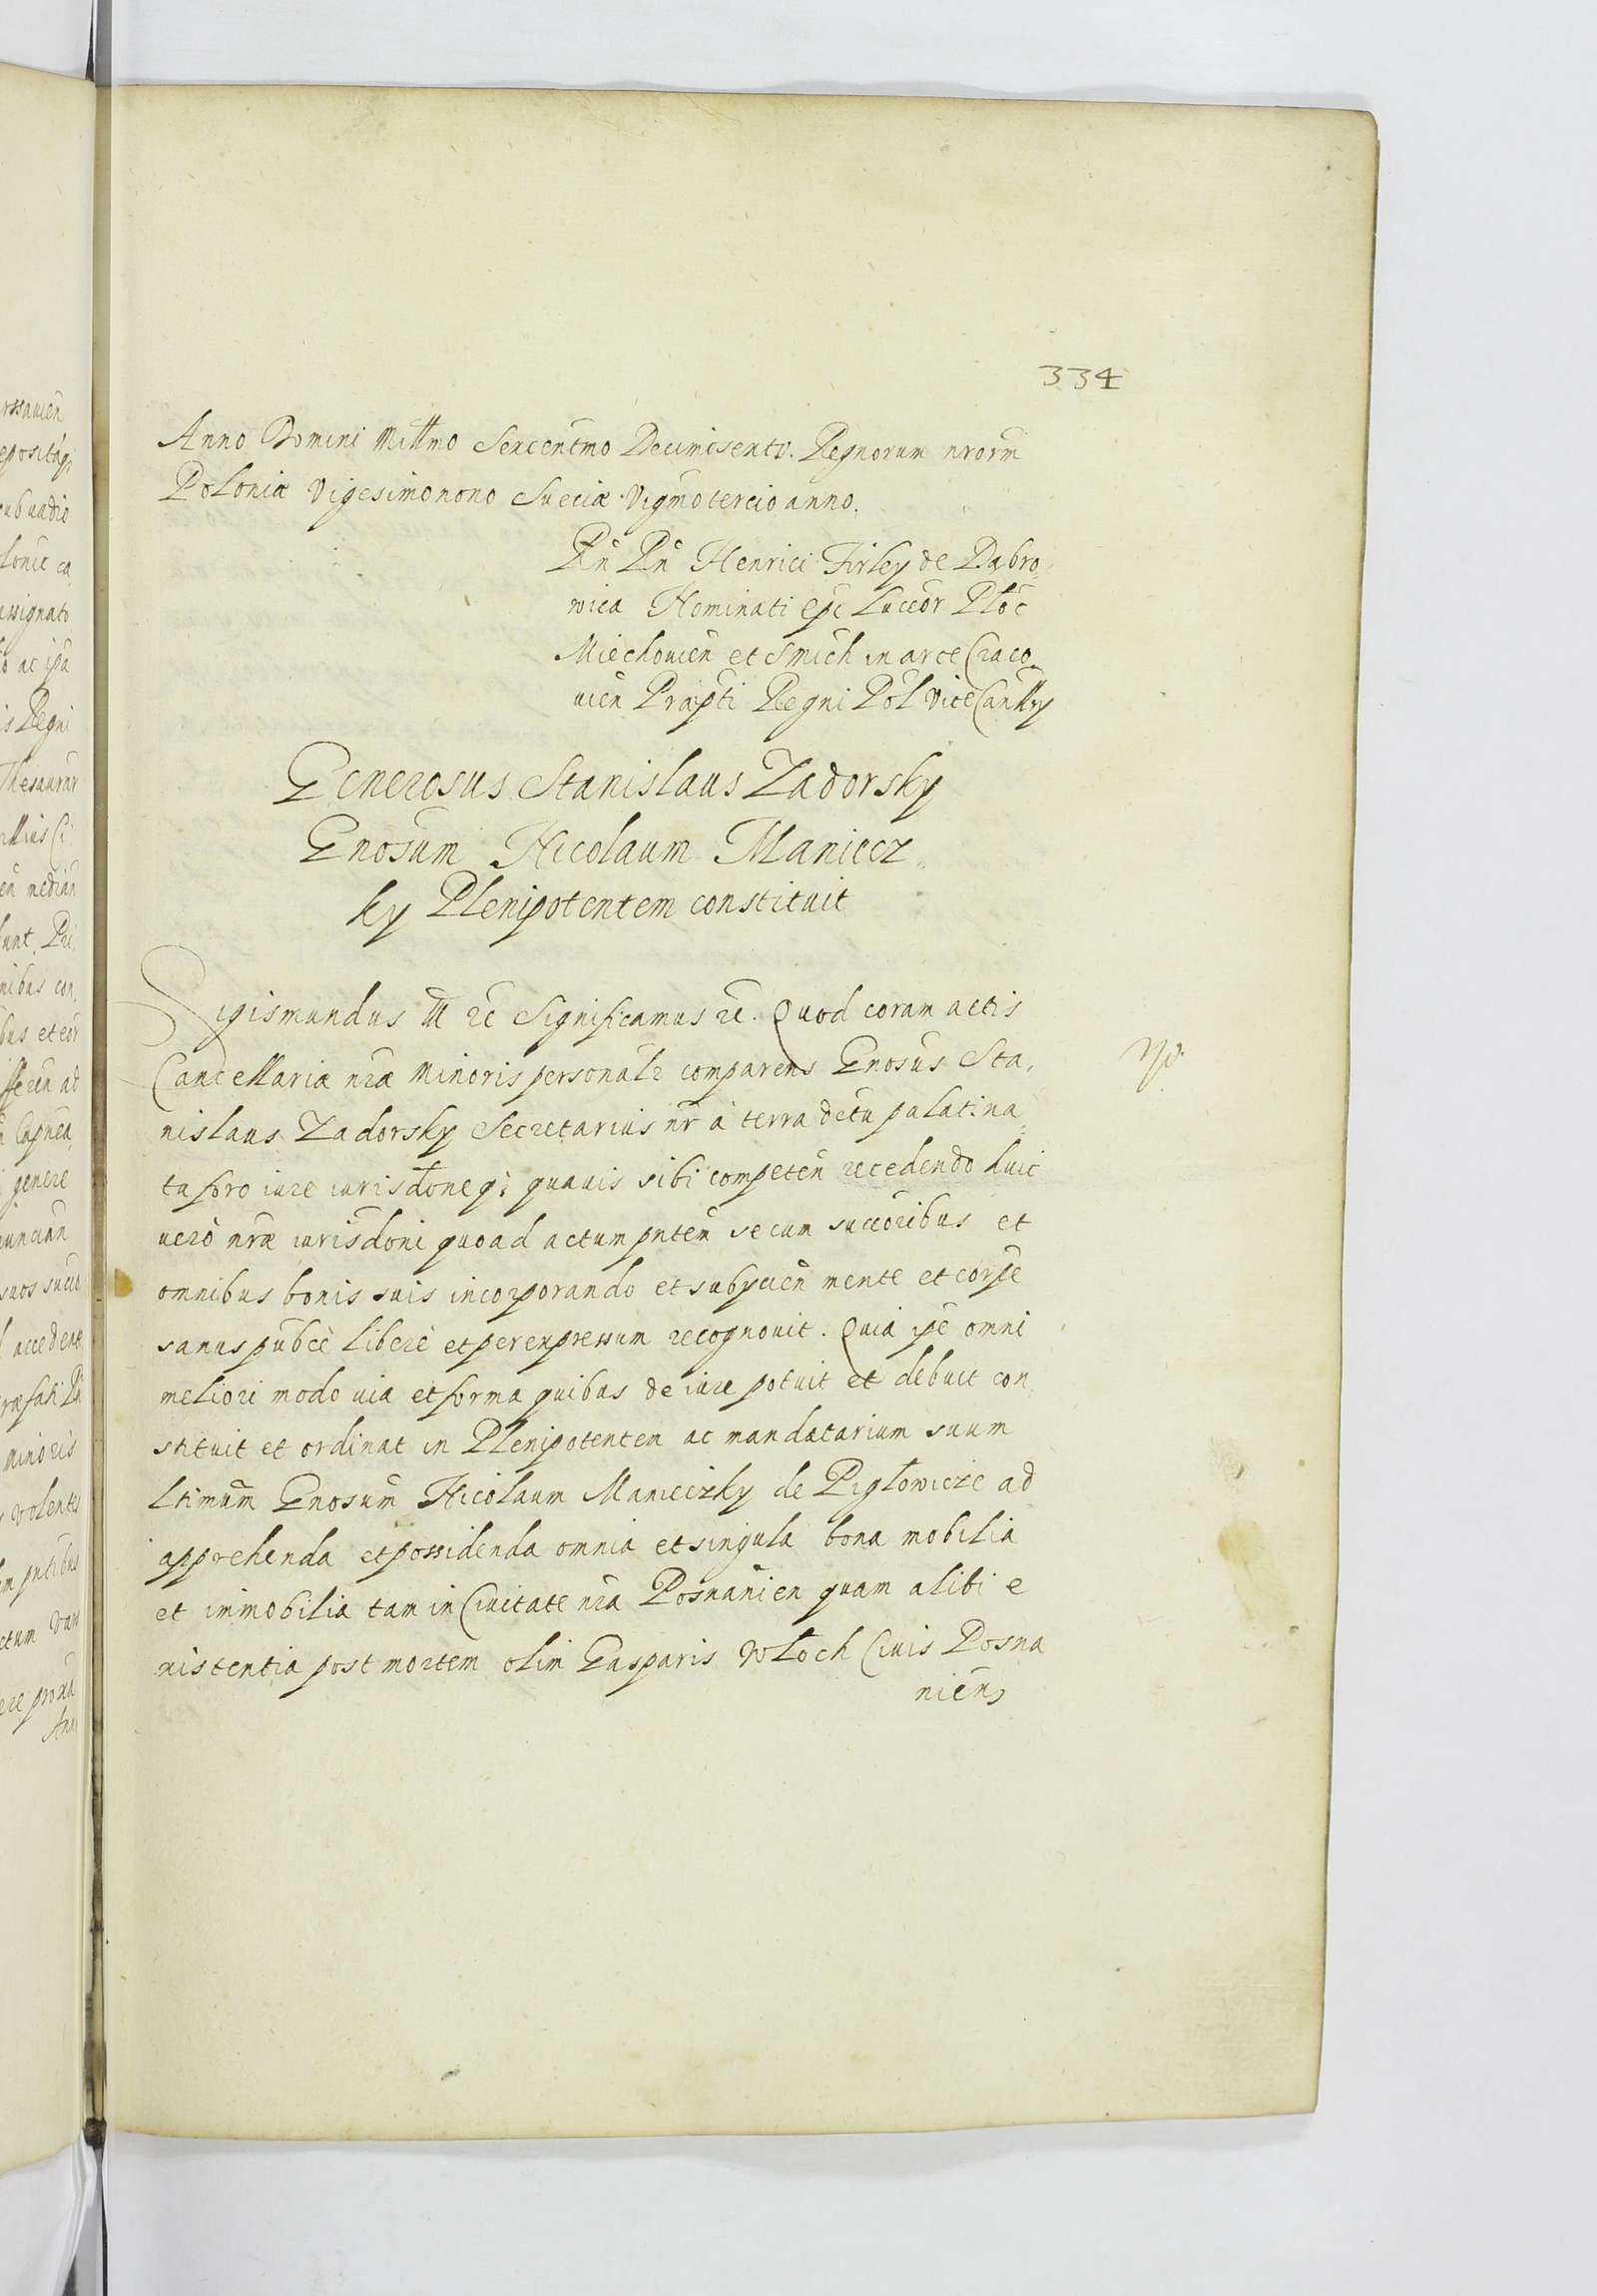 334
Anno Domini Millmo Sexcentmo Decimosexto. Regnorum nrorm
Poloniæ Vigesimonono Sueciæ Vigmotercio anno.
Rn Rn Henrici Firley de Dąbro,
wica Nominati Epi Luceor Ploc
Miechouien et S Mich in arce Craco,
uien Præpti Regni Pol ViceCanllry
Generosus Stanislaus Zadorsky
Gnosum Nicolaum Maniecz,
ky Plenipotentem constituit
Sigismundus III etc Significamus etc. Quod coram actis
Cancellariæ nræ Minoris personalr comparens Gnosus Sta,
nislaus Zadorsky Secretarius nr à terra dctu palatina,
tu foro iure iurisdone qi quauis sibi competen recedendo huic
uerò nræ iurisdoni quoad actum pntem se cum succoribus et
omnibus bonis suis incorporando et subijcien mente et corpe
sanus pubcè liberè et per expressum recognouit. Quia ipe omni
meliori modo uia et forma quibus de iure potuit et debuit con
stituit et ordinat in Plenipotentem ac mandatarium suum
ltimum Gnosum Nicolaum Manieczky de Pigłowicze ad
apprehenda et possidenda omnia et singula bona mobilia
et immobilia tam in Ciuitate nra Posnanien quam alibi e
xistentia post mortem olim Gasparis Włoch Ciuis Posna
nien,